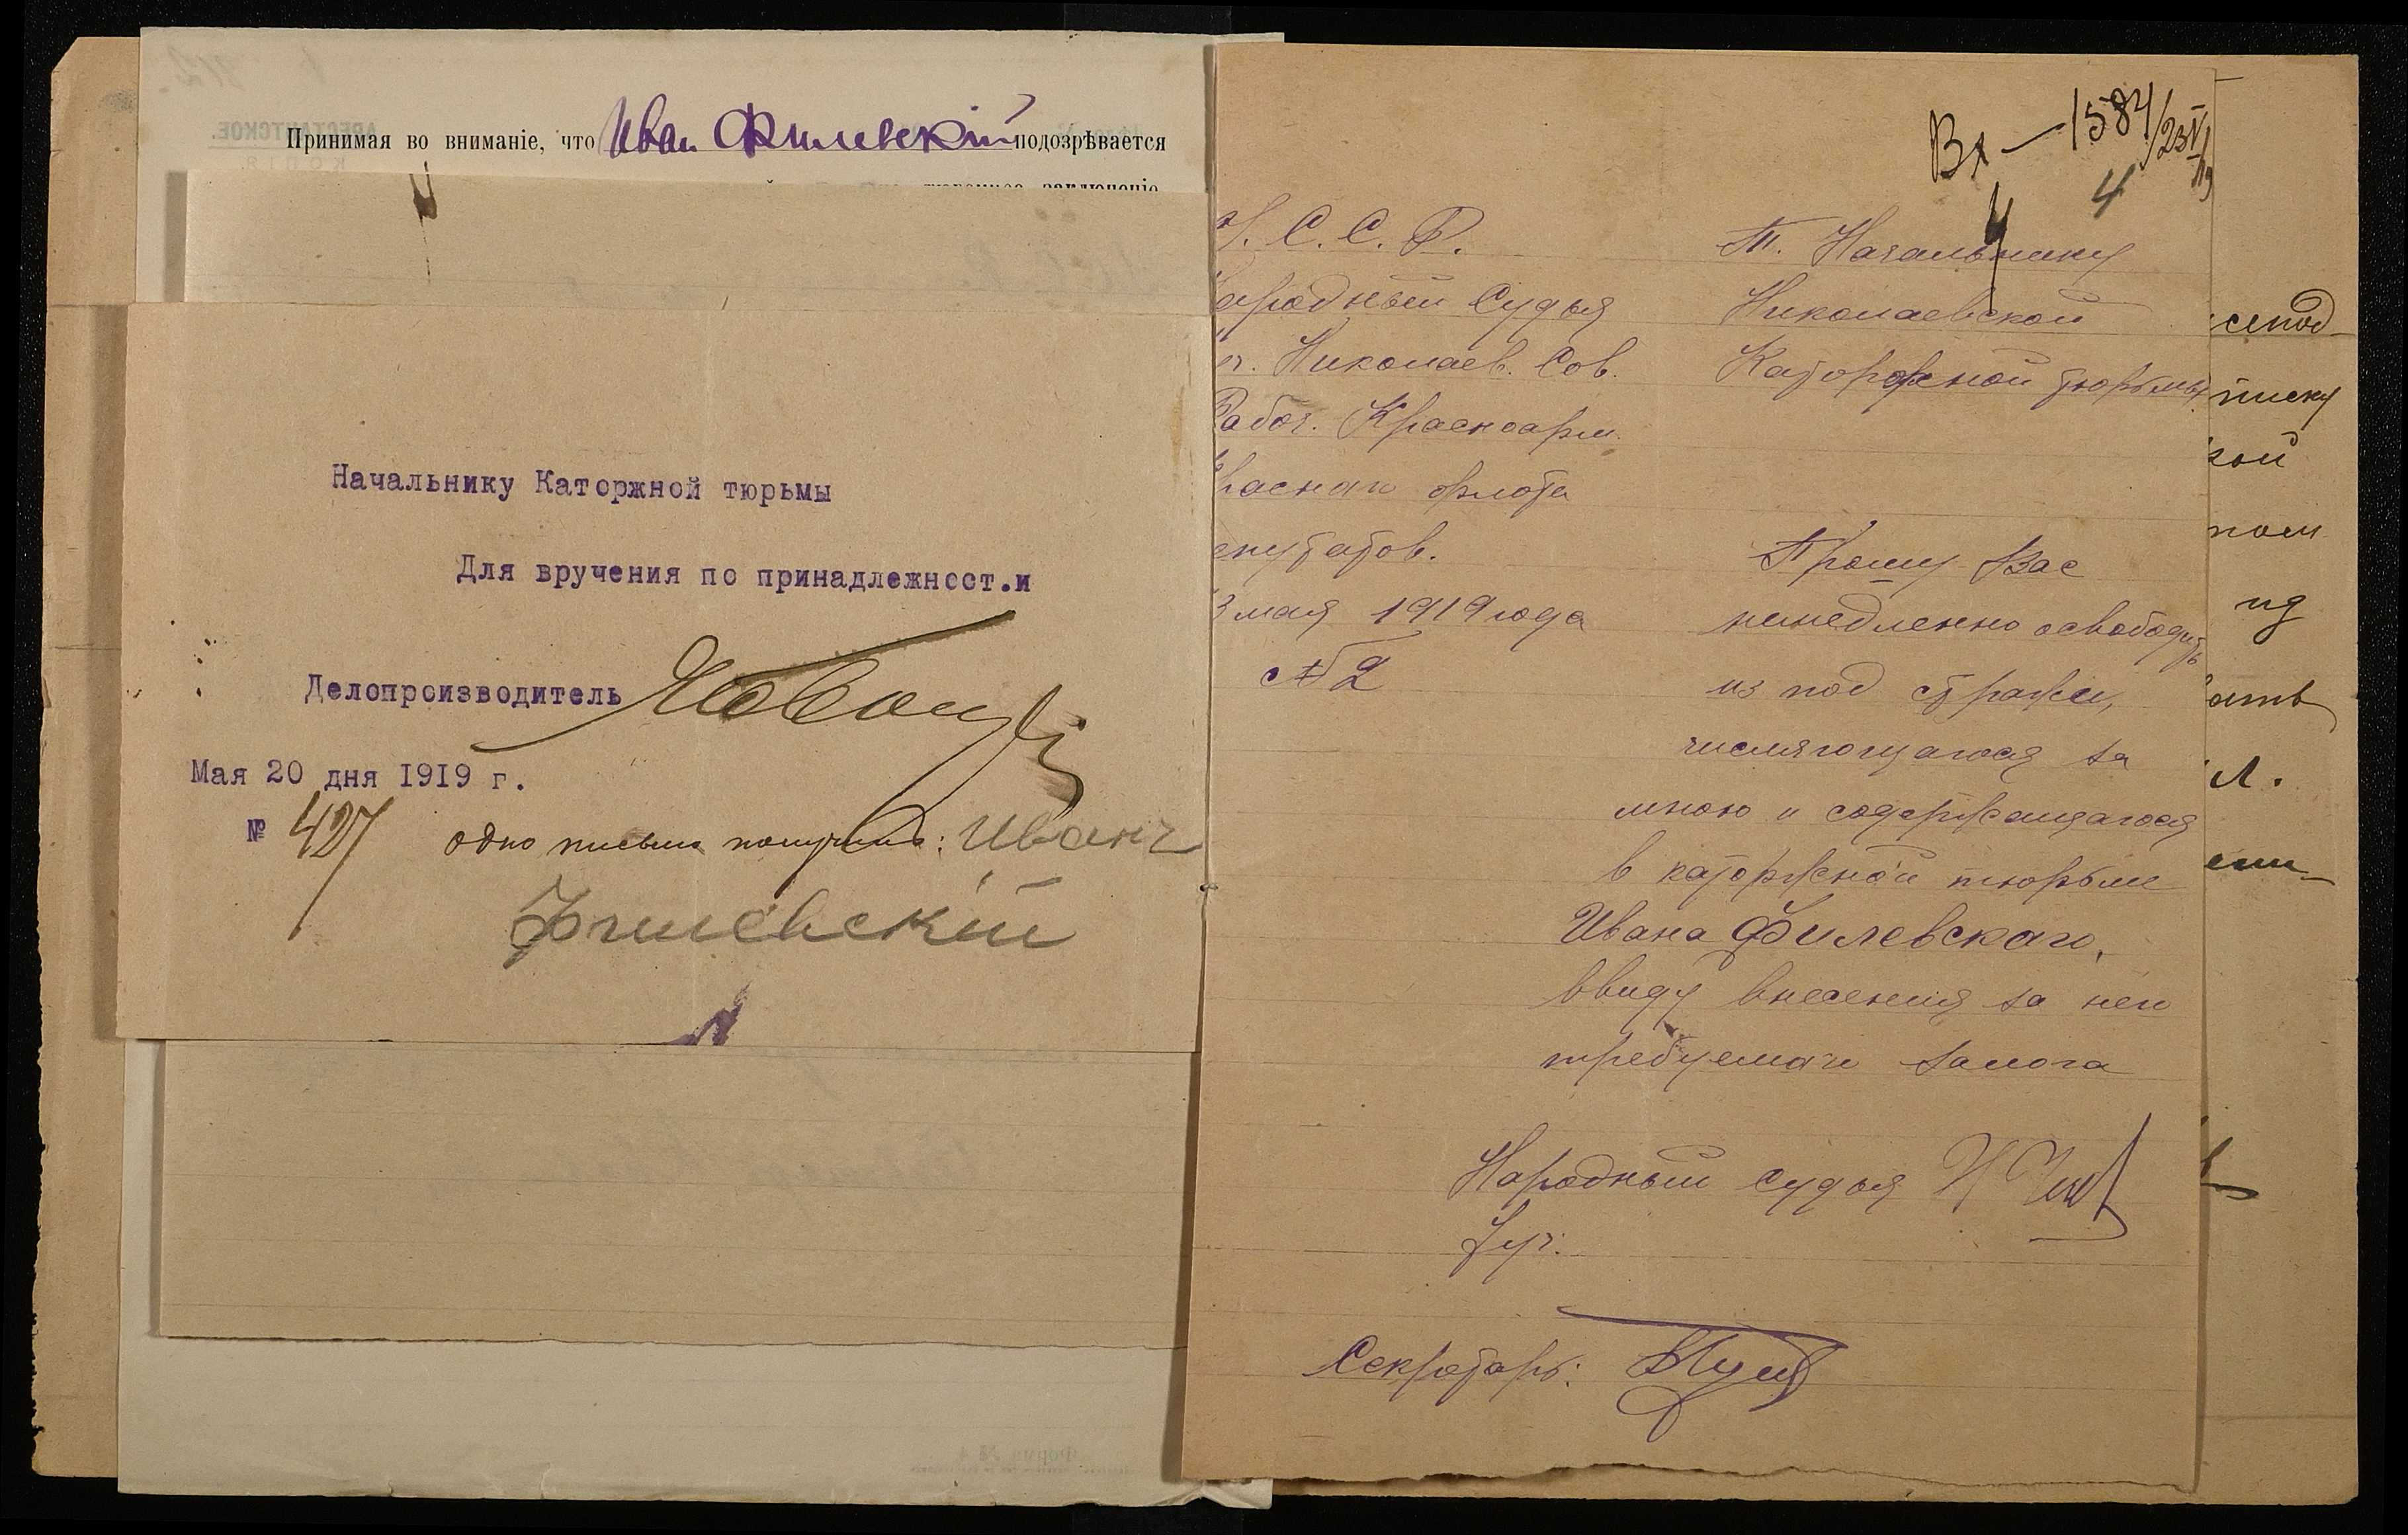 Принимая во вниманіе, что Иван Филевскій подозрѣвается
Начальнику Каторжной тюрьмы
Для вручения по принадлежност.и
Делопроизводитель
Мая 20 дня 1919 г.
№ 427 одно письмо получилъ: Иванъ
Филевскій
Вх — 1584/23V/19
4
У. С. С. Р.
ародный Судья
г. Николаев. Сов.
Рабоч. Красноарм.
раснаго флота
епутатов.
3 мая 1919 года
№ 2
Т. Начальнику
Николаевской
Каторжной тюрьмы
Прошу Вас
немедленно освободить
из под стражи,
числящагося за
мною и содержащагося
в каторжной тюрьме
Ивана Филевскаго,
ввиду внесения за него
требуемаго залога
Народный Судья
Секретарь:
писку
кой
ном
ид
ать